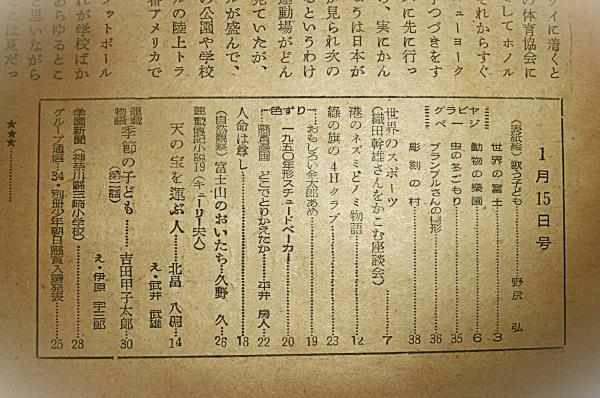 イに着くと
の体育協会に
してホノル
それからすぐ
ューヨーク
つづきをす
に先に行っ
ら、実にかん
うは日本が
が見られ次の
るというわけ
運動場がどん
見ていたが、
ルが盛んで、
の公園や学校
ルの陸上トラ
番アメリカで
ットボール
れが学校ばか
あらゆるとこ
と思いながら
こは夏だっ
★★★
1月15日号
(表紙絵) 歌う子ども 野尻 弘
グラビヤページ
世界の富士 3
動物の楽園 6
虫の冬ごもり 35
ブランブルさんの人形 36
彫刻の村 38
世界のスポーツ
(織田幹雄さんをかこむ座談会) 7
港のネズミとノミ物語 12
緑の旗の4Hクラブ 23
色ずり
おもしろい金太郎あめ 19
一九五〇年形スチュードベーカー 20
懸賞漫画 どこでとりかえたか 平井 房人 22
人命は尊し 18
(自然観察) 富士山のおいたち 久野 久 26
連載偉記小説19(キューリー夫人)
天の宝を運ぶ人 北畠 八穂 14
え・武井 武雄
連載物語 季節の子ども(第二話) 吉田甲子太郎 30
え・伊原 宇三郎
学園新聞(神奈川縣三崎小学校) 28
グループ通信・34・別冊少年朝日懸賞入選発表 25